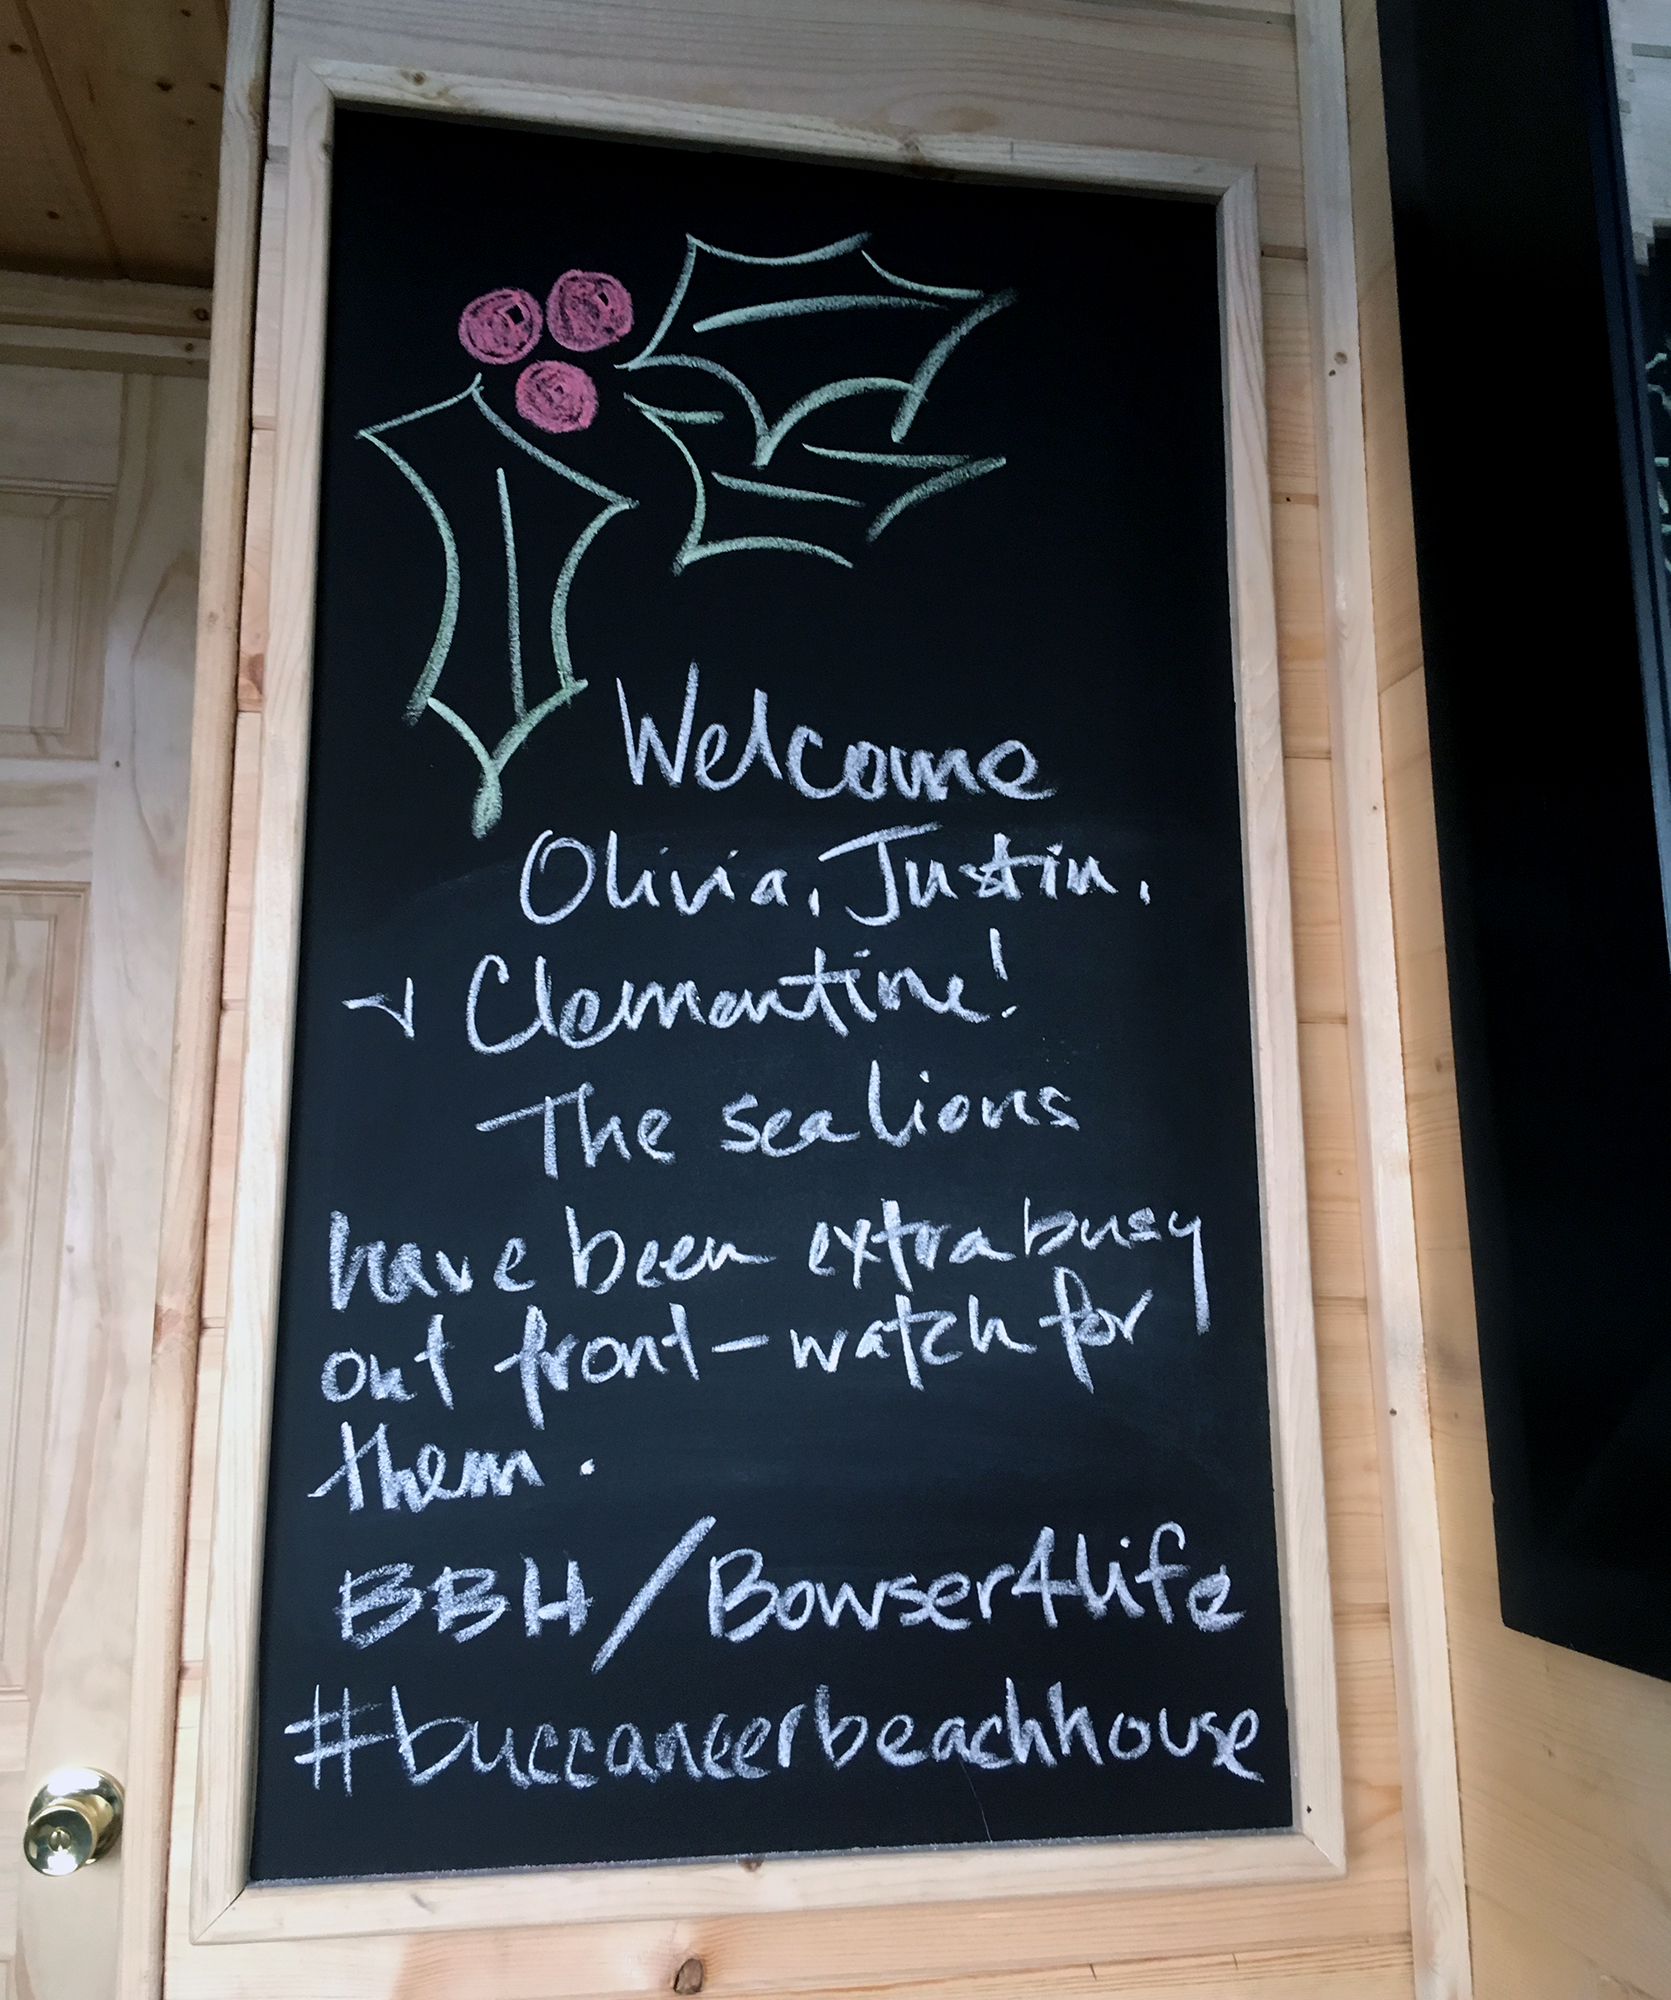 Welcome
Olivia, Justin,
+ Clementine!
The sea lions
have been extra busy
out front - watch for
them.
BBH/Bowser4life
#buccaneerbeachhouse